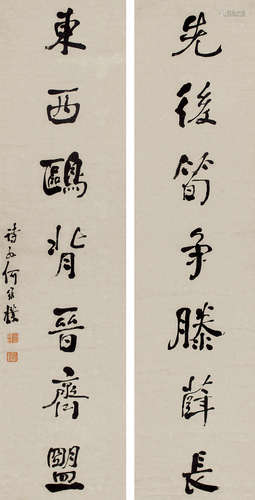 先後筍争滕薛長
東西鷗背晉齊盟
詩孫何維樸